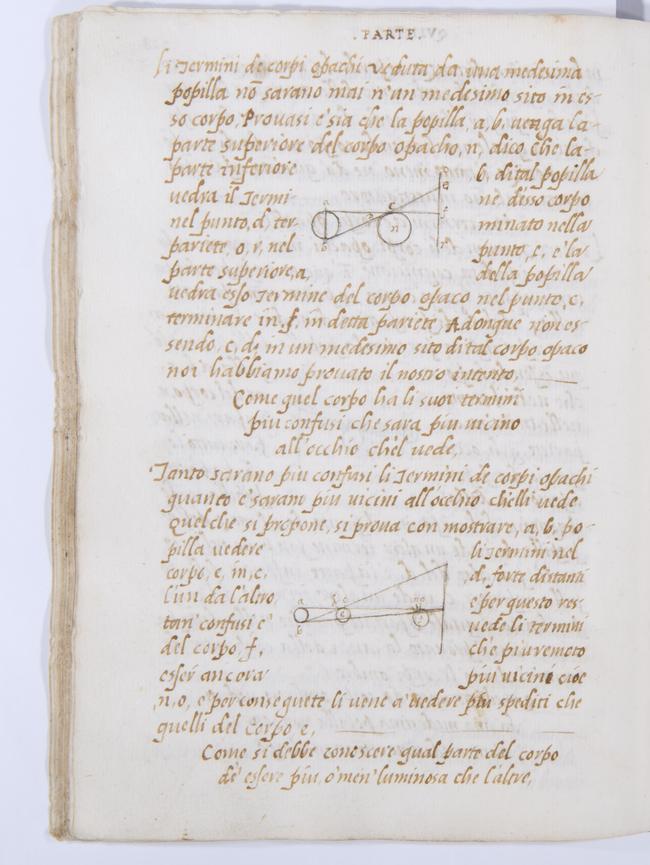 . PARTE .
Li Termini de corpi opachi veduta da una medesima
popilla nō sarano mai n'un medesimo sito in es-
so corpo, Provasi e sia che la popilla, a, b, venga la
parte superiore del corpo opacho, n, dico che la
parte inferiore b, di tal popilla
vedra il Termi ne d'esso corpo
nel punto, d, ter- minato nella
pariete, o, r, nel punto, c, e la
parte superiore, a, della popilla
vedra esso Termine del corpo opaco nel punto, c,
terminare in, f, in detta pariete, Adonque non es-
sendo, c, d, in un medesimo sito di tal corpo opaco
noi habbiamo provato il nostro intento,
Come quel corpo ha li suoi termini
piu confusi che sara piu vicino
all'occhio ch'el vede,
Tanto sarano piu confusi li Termini de corpi opachi
quanto e' sarano piu vicini all'occhio chelli vede
Quel che si propone, si prova con mostrare, a, b, po-
pilla vedere li termini nel
corpo, e, in, c, d, forte distanti
l'un da l'altro e per questo res-
tan' confusi e' vede li termini
del corpo, f, che piu remoto
esser ancora piu vicini cioe
, n, o, e per conseguete li vene a vedere piu spediti che
quelli del corpo e,
Come si debbe conoscere qual parte del corpo
de' essere piu, o men' luminosa che l'altre,